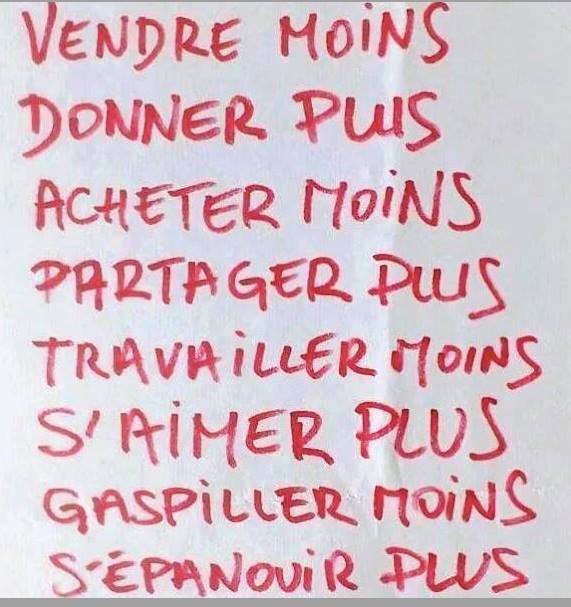 VENDRE MOiNS
DONNER PLUS
ACHETER MOiNS
PARTAGER PLUS
TRAVAiLLER MOiNS
S'AiMER PLUS
GASPiLLER MOiNS
S'ÉPANOUiR PLUS